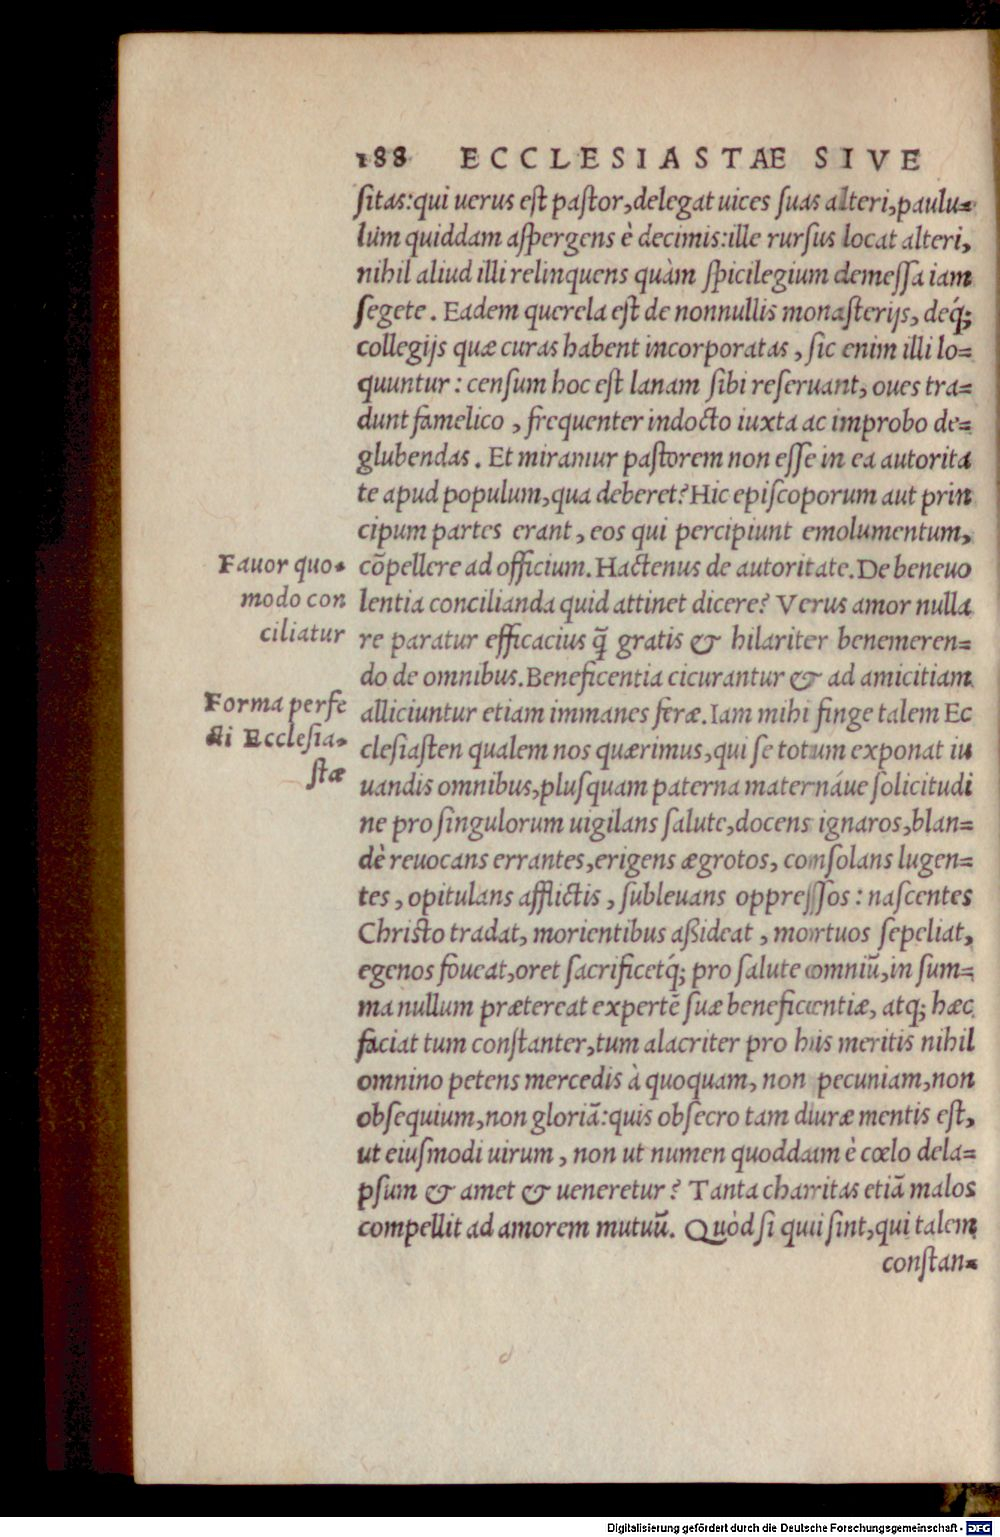 188 ECCLESIASTÆ SIVE
sitas:qui uerus est pastor,delegat uices suas alteri,paulu=
lùm quiddam aspergens è decimis:ille rursus locat alteri,
nihil aliud illi relinquens quàm spicilegium demessa iam
segete. Eadem querela est de nonnullis monasterijs, deq́;
collegijs quæ curas habent incorporatas, sic enim illi lo=
quuntur: censum hoc est lanam sibi reseruant, oues tra=
dunt famelico, frequenter indocto iuxta ac improbo de=
glubendas. Et miramur pastorem non esse in ea autorita
te apud populum,qua deberet? Hic episcoporum aut prin
cipum partes erant, eos qui percipiunt emolumentum,
cõpellere ad officium. Hactenus de autoritate. De beneuo
lentia concilianda quid attinet dicere? Verus amor nulla
re paratur efficacius q̃ gratis & hilariter benemeren=
do de omnibus. Beneficentia cicurantur & ad amicitiam
alliciuntur etiam immanes feræ. Iam mihi finge talem Ec
clesiasten qualem nos quærimus,qui se totum exponat iu
uandis omnibus,plusquam paterna maternáue solicitudi
ne pro singulorum uigilans salute,docens ignaros,blan=
dè reuocans errantes,erigens ægrotos, consolans lugen=
tes, opitulans afflictis, subleuans oppressos: nascentes
Christo tradat, morientibus aßideat, mortuos sepeliat,
egenos foueat,oret sacrificetq́; pro salute omniũ,in sum=
ma nullum prætereat expertẽ suæ beneficentiæ, atq; hæc
faciat tum constanter,tum alacriter pro his meritis nihil
omnino petens mercedis à quoquam, non pecuniam,non
obsequium,non gloriã:quis obsecro tam diuræ mentis est,
ut eiusmodi uirum, non ut numen quoddam è cœlo dela=
psum & amet & ueneretur? Tanta charitas etiã malos
compellit ad amorem mutuũ. Quòd si qui sint,qui talem
constan=
Fauor quo-
modo con
ciliatur
Forma perfe
cti Ecclesia-
stæ
Digitalisierung gefördert durch die Deutsche Forschungsgemeinschaft - DFG